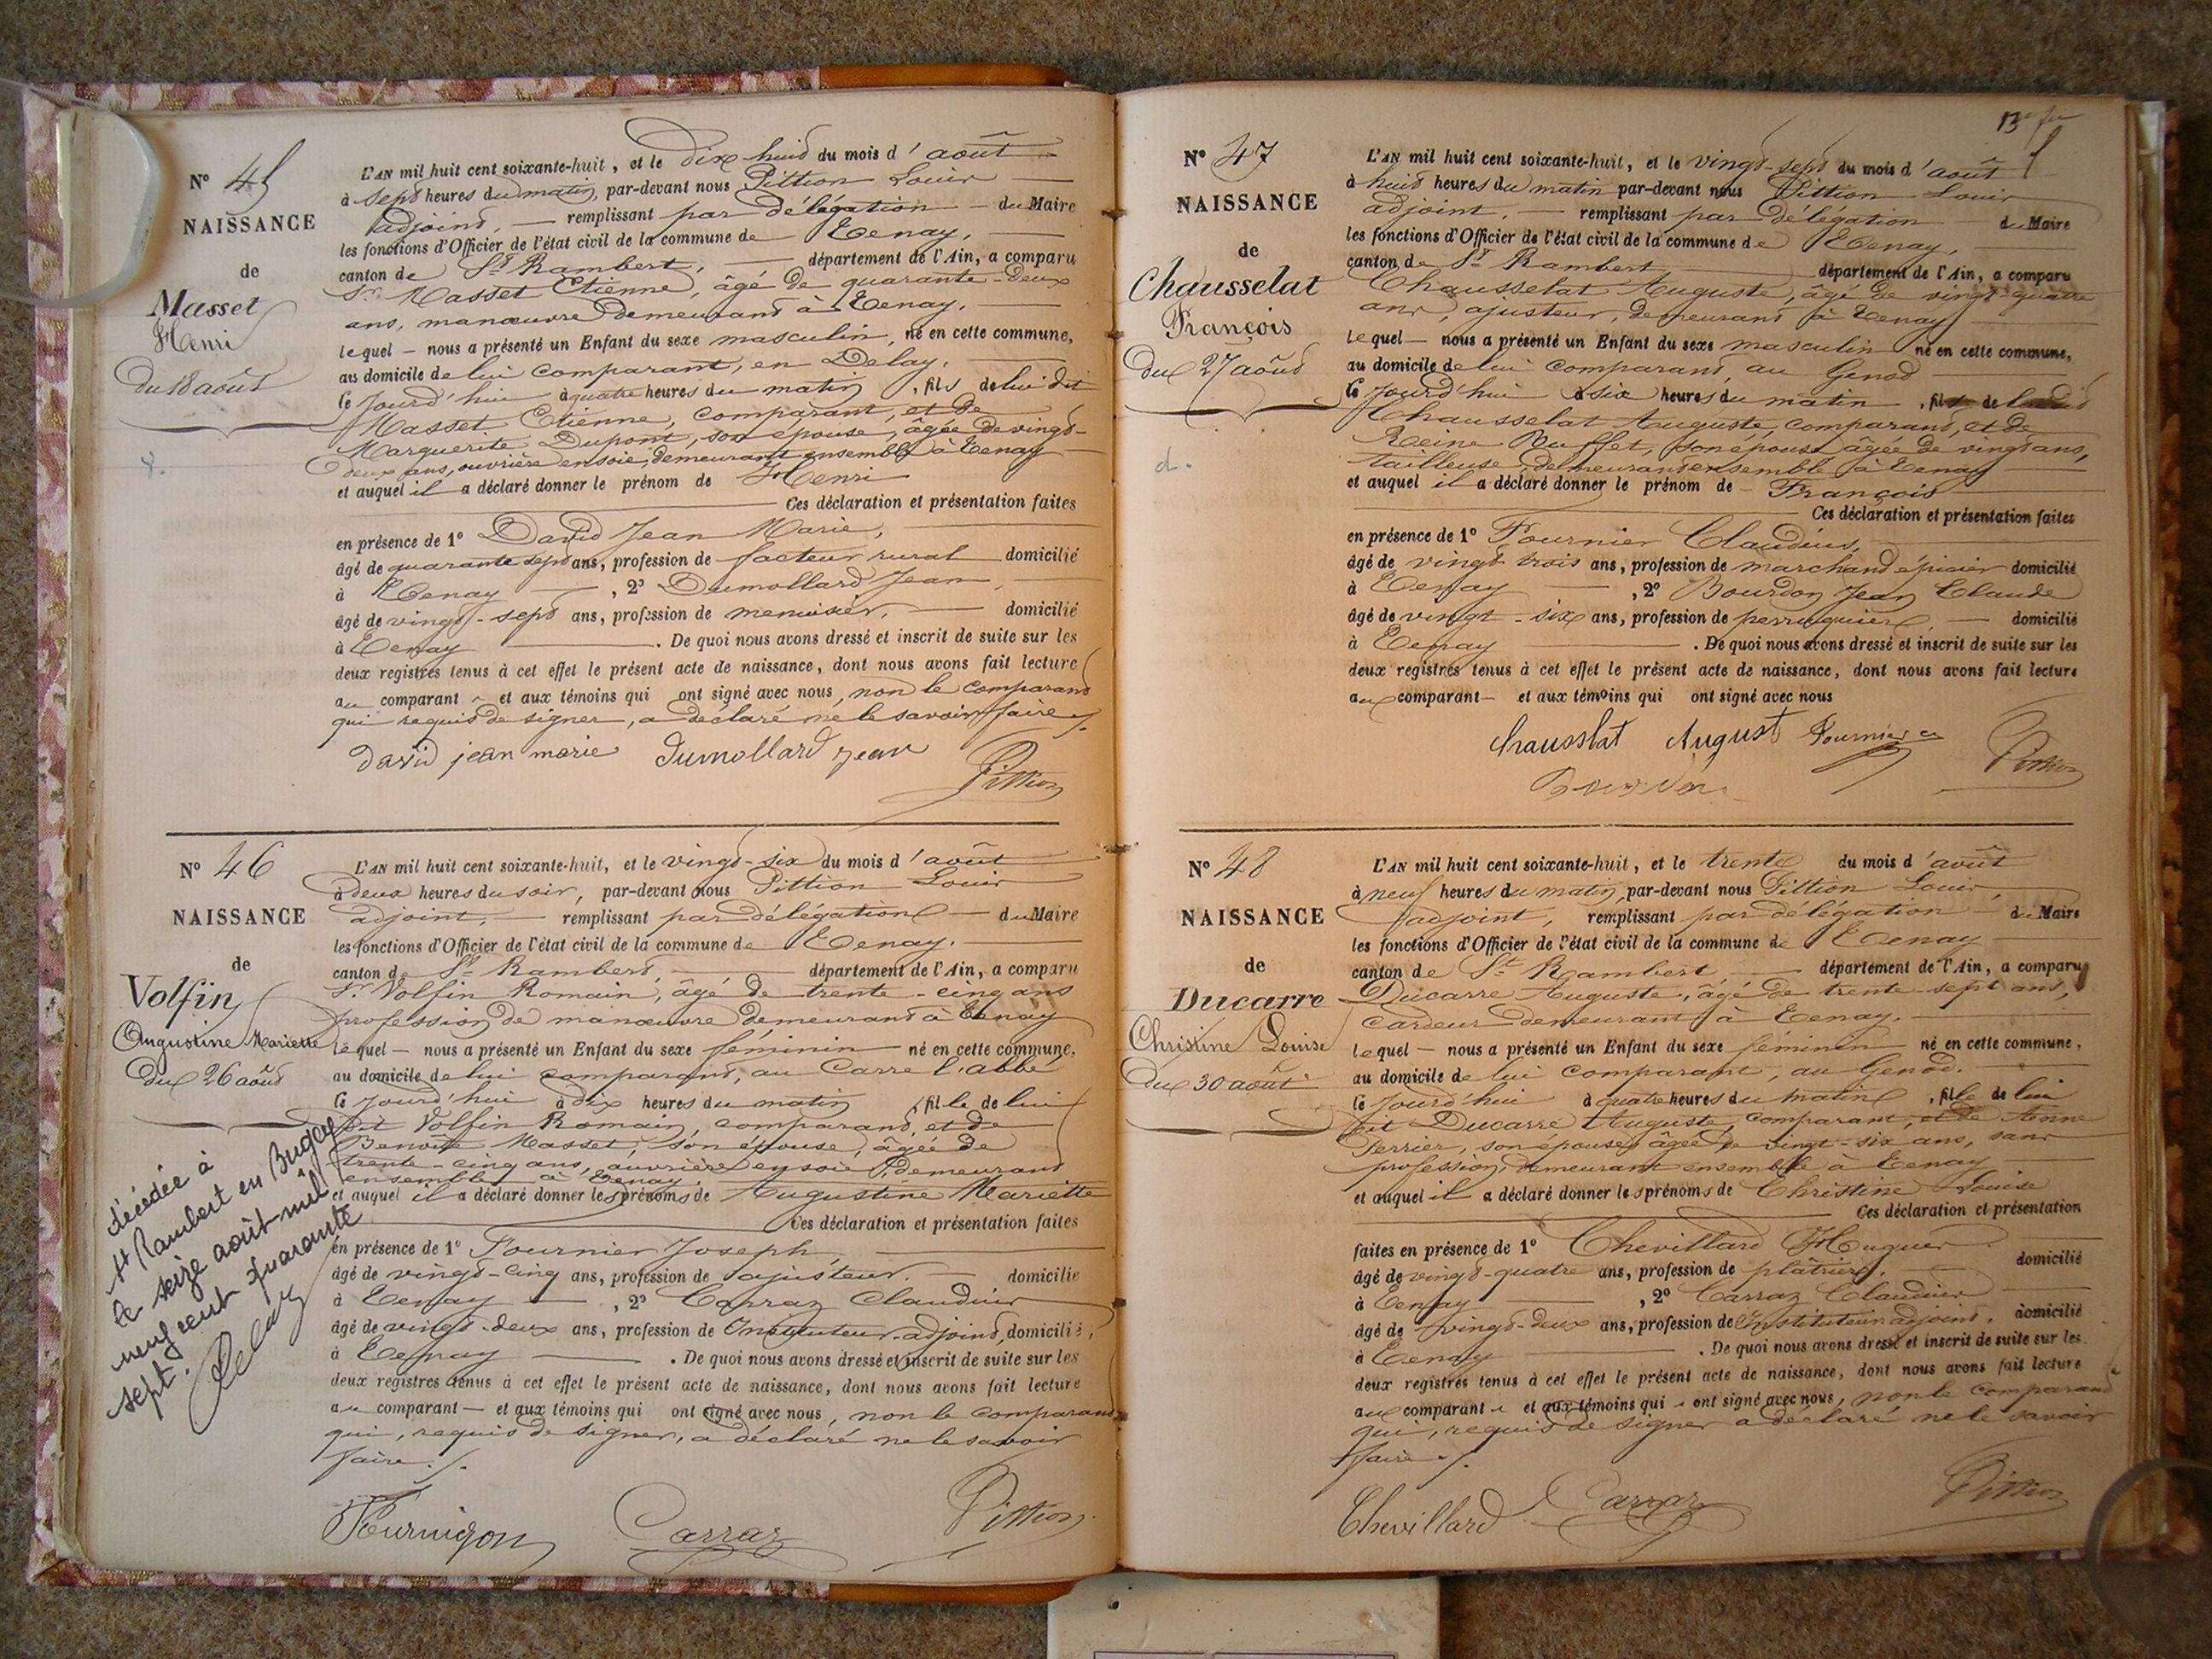 N° 45
NAISSANCE
de
Masset
Henri
du 18 août
L'AN mil huit cent soixante-huit, et le dix huit du mois d'août
à sept heures du matin, par-devant nous Pittion Louis
adjoint, remplissant par délégation du Maire
les fonctions d'Officier de l'état civil de la commune de Tenay,
canton de St Rambert, département de l'Ain, a comparu
Sr Masset Etienne, âgé de quarante-deux
ans, manœuvre demeurant à Tenay,
lequel nous a présenté un Enfant du sexe masculin, né en cette commune,
au domicile de lui comparant, en Delay,
ce jourd'hui à quatre heures du matin, fils de lui dit
Masset Etienne, comparant, et de
Marguerite Dupont, son épouse, âgée de vingt-
deux ans, ouvrière en soie, demeurant ensemble à Tenay
et auquel il a déclaré donner le prénom de Henri
Ces déclaration et présentation faites
en présence de 1° David Jean Marie,
âgé de quarante sept ans, profession de facteur rural domicilié
à Tenay, 2° Dumollard Jean,
âgé de vingt-sept ans, profession de menuisier, domicilié
à Tenay. De quoi nous avons dressé et inscrit de suite sur les
deux registres tenus à cet effet le présent acte de naissance, dont nous avons fait lecture
au comparant et aux témoins qui ont signé avec nous, non le comparant
qui requis de signer, a déclaré ne le savoir faire ./.
david jean marie Dumollard jean
Pittion
N° 46
NAISSANCE
de
Volfin
Augustine Mariette
du 26 août
L'AN mil huit cent soixante-huit, et le vingt-six du mois d'août
à deux heures du soir, par-devant nous Pittion Louis
adjoint, remplissant par délégation du Maire
les fonctions d'Officier de l'état civil de la commune de Tenay,
canton de St Rambert, département de l'Ain, a comparu
Sr Volfin Romain, âgé de trente-cinq ans
profession de manœuvre demeurant à Tenay
lequel nous a présenté un Enfant du sexe féminin né en cette commune,
au domicile de lui comparant, au Carre l'abbé
ce jourd'hui à dix heures du matin, fille de lui
dit Volfin Romain, comparant, et de
Benoîte Masset, son épouse, âgée de
trente-cinq ans, ouvrière en soie, demeurant
ensemble à Tenay.
et auquel il a déclaré donner les prénoms de Augustine Mariette
Ces déclaration et présentation faites
en présence de 1° Fournier Joseph,
âgé de vingt-cinq ans, profession de ajusteur, domicilié
à Tenay, 2° Carraz Claudius
âgé de vingt-deux ans, profession de Instituteur-adjoint, domicilié,
à Tenay. De quoi nous avons dressé et inscrit de suite sur les
deux registres tenus à cet effet le présent acte de naissance, dont nous avons fait lecture
au comparant et aux témoins qui ont signé avec nous, non le comparant
qui, requis de signer, a déclaré ne le savoir
faire ./.
Carraz Pittion
décédée à
St Rambert en Bugey
le seize août mil
neuf cent quarante
sept.
13e
N° 47
NAISSANCE
de
Chausselat
François
du 27 août
d.
L'AN mil huit cent soixante-huit, et le vingt-sept du mois d'août
à huit heures du matin par-devant nous Pittion Louis
adjoint, remplissant par délégation du Maire
les fonctions d'Officier de l'état civil de la commune de Tenay,
canton de St Rambert département de l'Ain, a comparu
Chausselat Auguste, âgé de vingt-quatre
ans, ajusteur, demeurant à Tenay
lequel nous a présenté un Enfant du sexe masculin né en cette commune,
au domicile de lui comparant, au Genod
ce jourd'hui à six heures du matin, fils de
Chausselat Auguste, comparant, et de
Reine Buffet, son épouse âgée de vingt ans,
tailleuse, demeurant ensemble à Tenay
et auquel il a déclaré donner le prénom de François
Ces déclaration et présentation faites
en présence de 1° Fournier Claudius,
âgé de vingt trois ans, profession de marchand épicier domicilié
à Tenay, 2° Bourdon Jean Claude
âgé de vingt-six ans, profession de perruquier, domicilié
à Tenay. De quoi nous avons dressé et inscrit de suite sur les
deux registres tenus à cet effet le présent acte de naissance, dont nous avons fait lecture
au comparant et aux témoins qui ont signé avec nous
Chausslat August Fournier
Pittion
N° 48
NAISSANCE
de
Ducarre
Christine Louise
du 30 août
L'AN mil huit cent soixante-huit, et le trente du mois d'août
à neuf heures du matin, par-devant nous Pittion Louis,
adjoint, remplissant par délégation du Maire
les fonctions d'Officier de l'état civil de la commune de Tenay
canton de St Rambert département de l'Ain, a comparu
Ducarre Auguste, âgé de trente-sept ans,
cardeur demeurant à Tenay.
lequel nous a présenté un Enfant du sexe féminin né en cette commune,
au domicile de lui comparant, au Genod.
ce jourd'hui à quatre heures du matin, fille de lui
dit Ducarre Auguste, comparant, et de Anne
Perrier, son épouse, âgée de vingt-six ans, sans
profession, demeurant ensemble à Tenay
et auquel il a déclaré donner les prénoms de Christine Louise
Ces déclaration et présentation
faites en présence de 1° Chevillard Hugues domicilié
âgé de vingt-quatre ans, profession de plâtrier,
à Tenay, 2° Carraz Claudius
âgé de vingt-deux ans, profession de Instituteur adjoint, domicilié
à Tenay. De quoi nous avons dressé et inscrit de suite sur les
deux registres tenus à cet effet le présent acte de naissance, dont nous avons fait lecture
au comparant et aux témoins qui ont signé avec nous, non le comparant
qui, requis de signer a déclaré ne le savoir
faire ./.
Chevillard Carraz Pittion